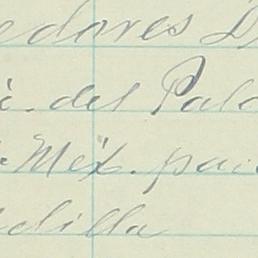 edores D
a. del Pala
. Méx. pac
dilla